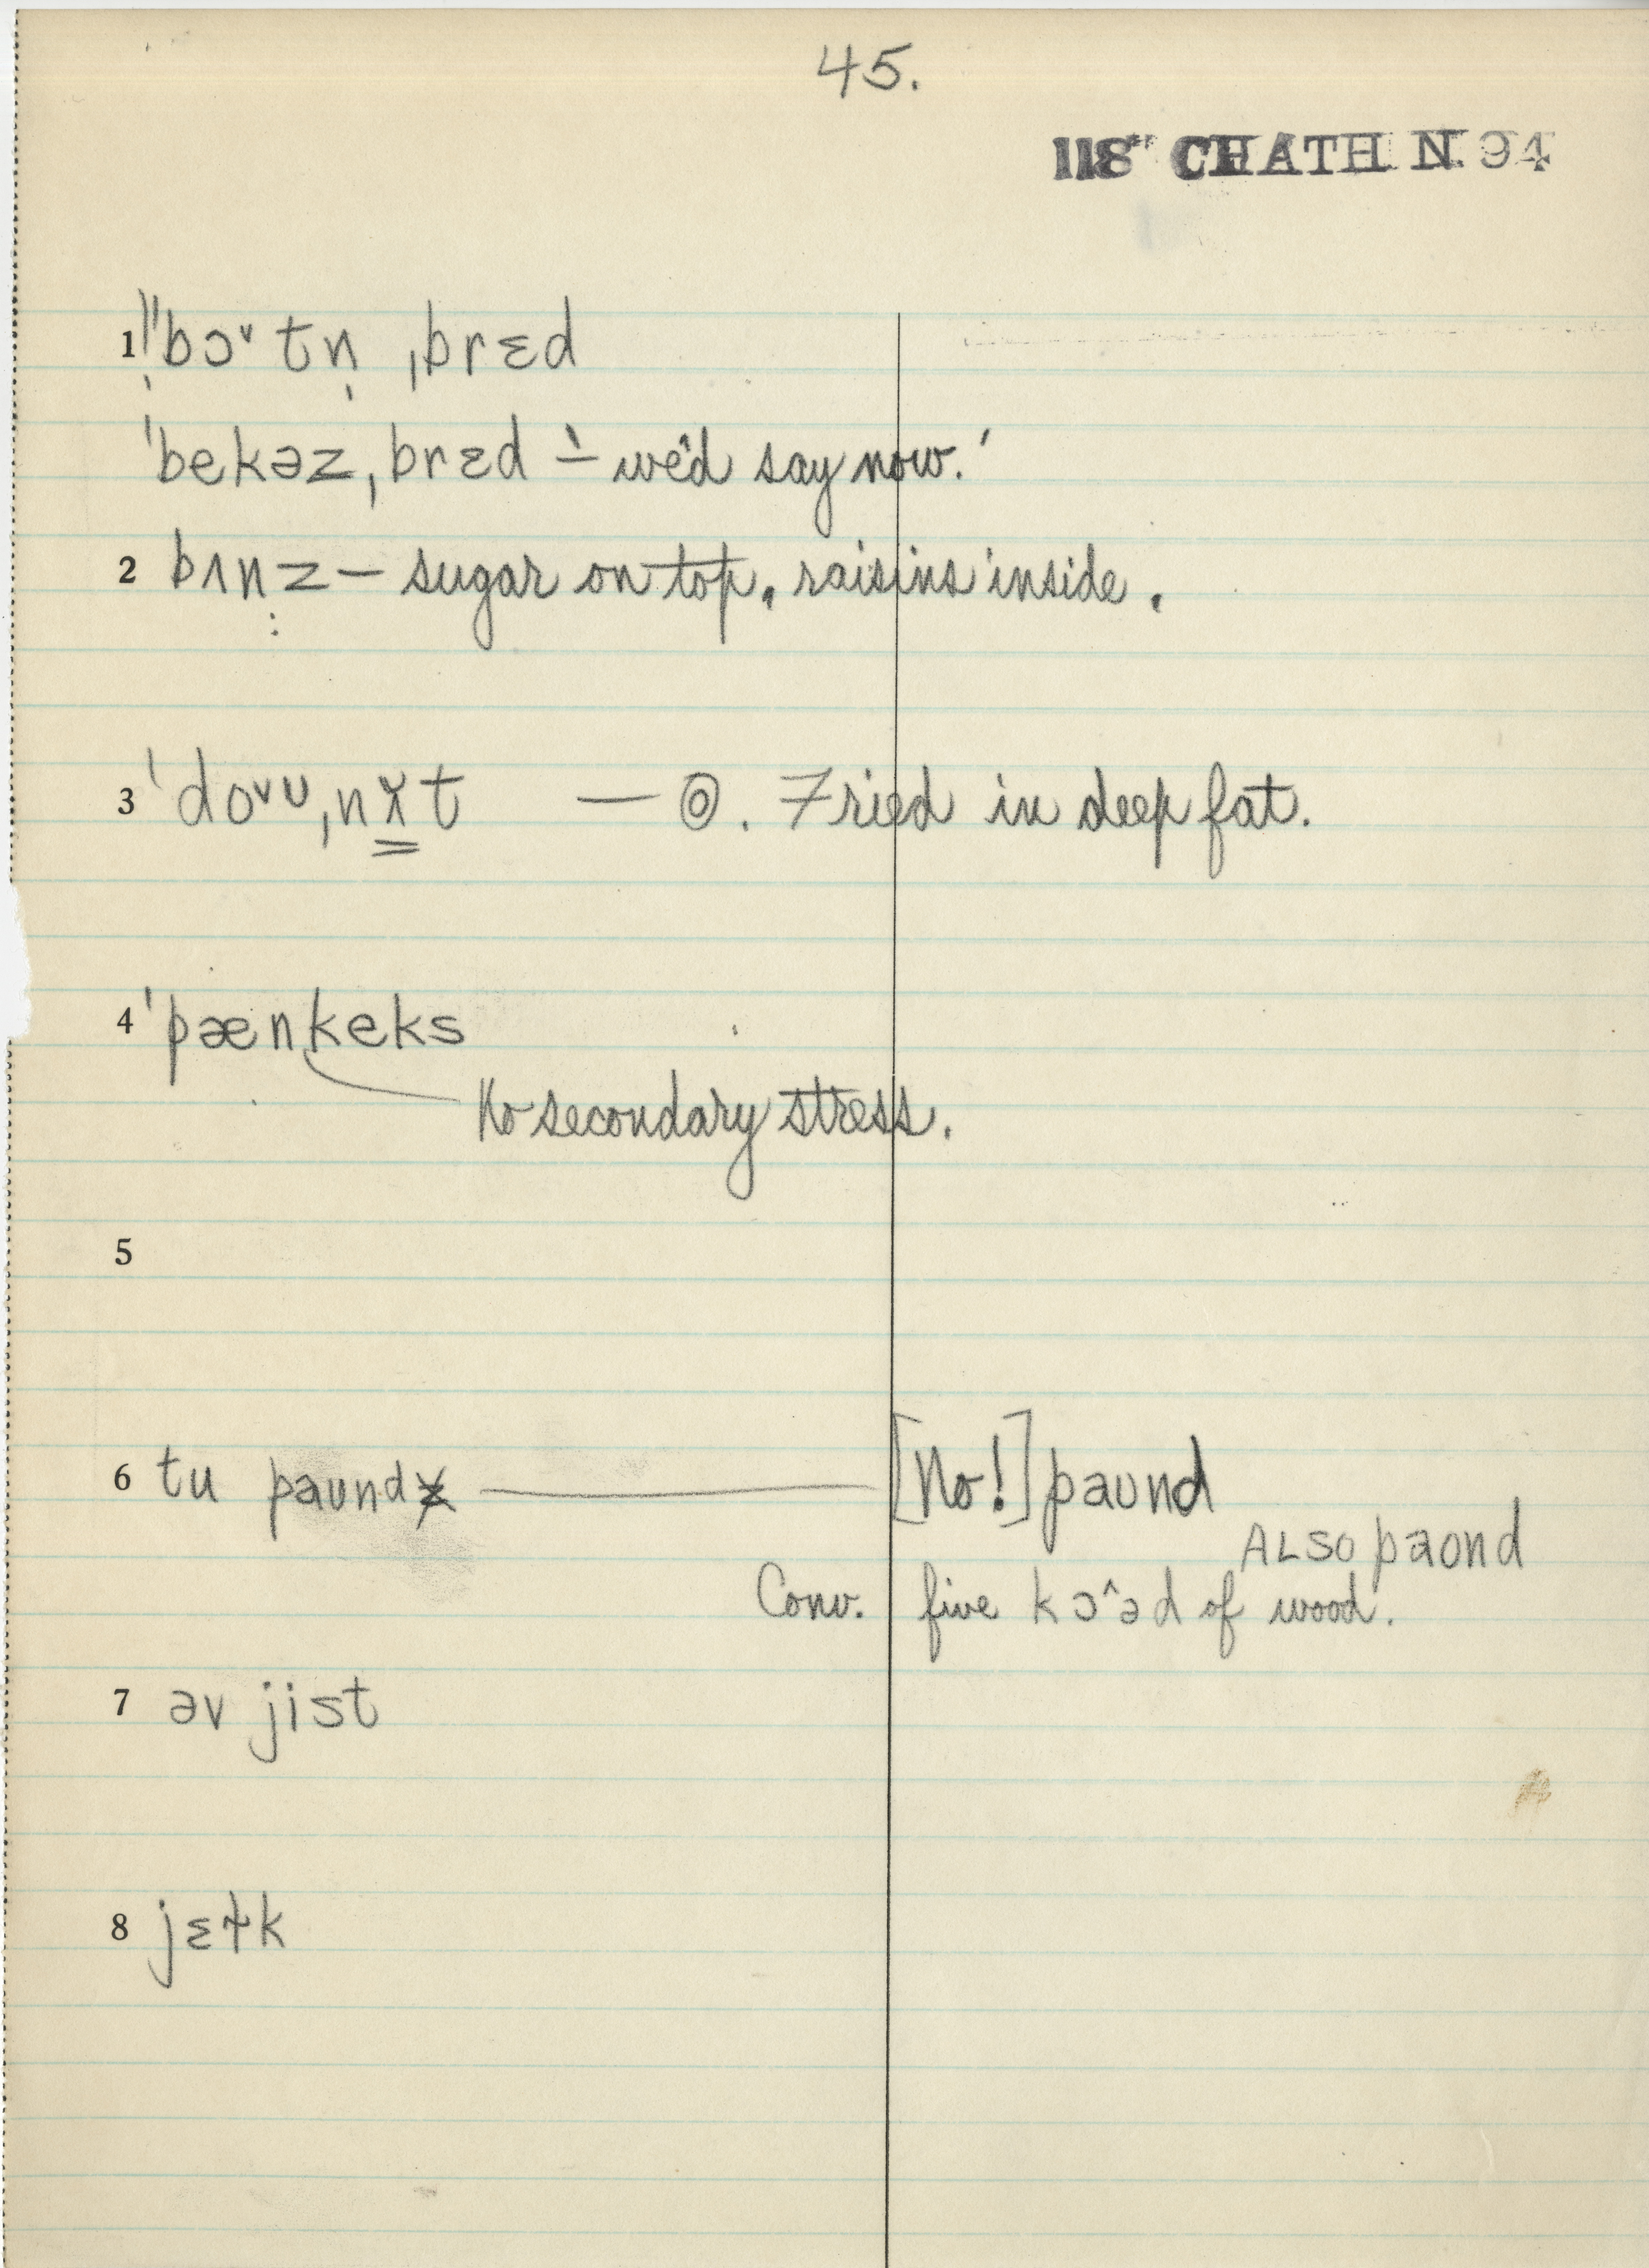 45.
118* CHATH N. 94
1 ‖ˈbɔˇtn̩ ˌbrɛd
ˈbekəz ˌbrɛd ‵– we'd say now.′
2 bʌnz̤ – sugar on top, raisins inside.
3 ˈdoˇᴜˌnɤ̳t — ◎. Fried in deep fat.
4 ˈpænkeks
No secondary stress.
5
6 tu paundz — [No!] paund
ALSO paond
Conv. five kɔˆəd of wood.
7 əv jist
8 jɛɫk